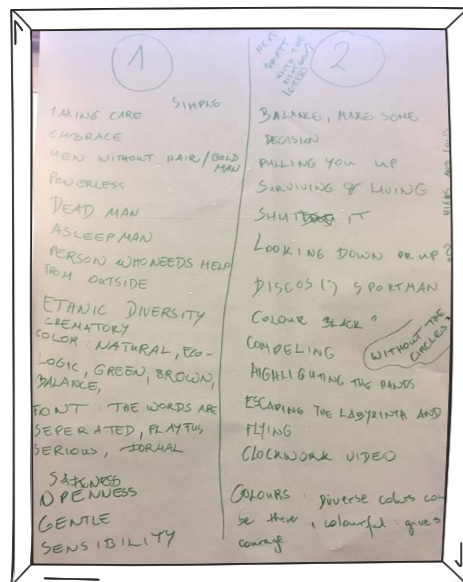 1
SIMPLE
TAKING CARE
EMBRACE
MEN WITHOUT HAIR/BOLD
MAN
POWERLESS
DEAD MAN
ASLEEP MAN
PERSON WHO NEEDS HELP
FROM OUTSIDE
ETHNIC DIVERSITY
CREMATORY
COLOR: NATURAL, ECO-
LOGIC, GREEN, BROWN,
BALANCE,
FONT: THE WORDS ARE
SEPERATED, PLAYFUS
SERIOUS, FORMAL
OPENNESS
GENTLE
SENSIBILITY
NEXT
DRAFT
WITH THE
LETTERS
2.
BALANCE, MAKE SOME
DECISION
PULLING YOU UP
SURVIVING & LIVING
IT
LOOKING DOWN OR UP?
DISCOS(!) SPORTMAN
COLOUR BLACK?
WITHOUT THE
CIRCLES
COMPELING
HIGHLIGHTING THE HANDS
ESCAPING THE LABYRINTH AND
FLYING
CLOCKWORK VIDEO
COLOURS: Diverse colors
be there, colourful: gives
courage